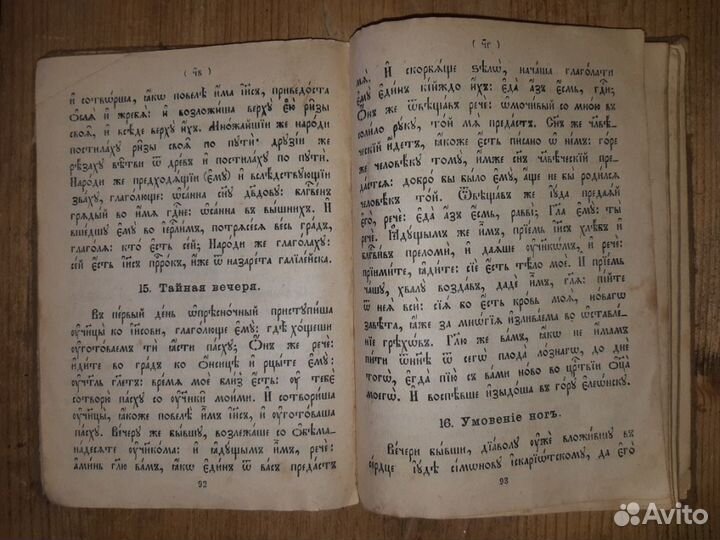 ( ч҃в )
и҆ сотвориша, ꙗ҆коже повелѣ и҆ма і҆и҃съ, приведоста
ѻ҆слѧ и҆ жребѧ: и҆ возложиша верхꙋ є҆ю̀ ризы
своѧ̑, и҆ всѣде верхꙋ и҆хъ. Множайшїи же народи
постилахꙋ ризы своѧ по пꙋти: дрꙋзїи же
рѣзахꙋ вѣтви ѿ древъ и҆ постилахꙋ по пꙋти.
Народи же предходѧщїи (є҆мꙋ) и҆ вслѣдствꙋющїи
звахꙋ, глаголюще: ѡ҆санна сн҃ꙋ дв҃довꙋ: блг҃венъ
грѧдый во и҆мѧ гдⷭ҇не: ѡ҆санна въ вышнихъ. И҆
вшедшꙋ є҆мꙋ во і҆ерⷭ҇лимъ, потрѧсесѧ весь градъ,
глаголѧ: кто є҆сть сей; Народи же глаголахꙋ:
сей є҆сть і҆и҃съ прⷪ҇рокъ, и҆же ѿ назарета галїлейска.
15. Тайная вечеря.
Въ первый день ѡ҆прѣсночный пристꙋпиша
ᲂу҆чн҃цы ко і҆исови, глаголюще є҆мꙋ: гдѣ хощеши
ᲂу҆готоваемъ ти ꙗ҆сти пасхꙋ; Ѻ҆нъ же рече:
и҆дите во градъ ко ѻ҆нсицѣ и҆ рцыте є҆мꙋ:
ᲂу҆чт҃ль гл҃етъ: времѧ мое близ є҆сть: ᲂу҆ тебє
сотворю пасхꙋ со ᲂу҆чн҃ки моими. И҆ сотвориша
ᲂу҆чн҃цы, ꙗ҆коже повелѣ и҆мъ і҆и҃съ, и҆ ᲂу҆готоваша
пасхꙋ. Вечерꙋ же бывшꙋ, возлежаше со ѻ҆бѣма
надесѧте ᲂу҆чн҃кома: и҆ ꙗ҆дꙋщымъ и҆мъ, рече:
а҆минь гл҃ю вамъ, ꙗ҆кѡ є҆динъ ѿ васъ предастъ
92
( ч҃г )
мѧ. И҆ скорбѧще ѕѣлѡ, начаша глаголати
є҆мꙋ є҆динъ кїйждо и҆хъ: є҆да а҆зъ є҆смь, гдⷭ҇и;
Ѻ҆нъ же ѿвѣщавъ рече: ѡ҆мочивый со мною въ
солило рꙋкꙋ, той мѧ предастъ. Сн҃ъ же чл҃вѣ-
ческїй и҆детъ, ꙗ҆коже є҆сть писано ѡ҆ немъ: горе
же человѣкꙋ томꙋ, и҆мже сн҃ъ чл҃вѣческїй пре-
дастсѧ: добро бы было є҆мꙋ, а҆ще не бы родилсѧ
человѣкъ той. Ѿвѣщавъ же і҆ꙋда предаѧй
є҆го, рече: є҆да а҆зъ є҆смь, равви; Гл҃а є҆мꙋ: ты
рече. Ꙗ҆дꙋщымъ же и҆мъ, прїемь і҆и҃съ хлѣбъ и҆
блг҃вивъ преломи, и҆ даѧше ᲂу҆чн҃кѡмъ, и҆ рече:
прїимите, ꙗ҆дите: сїе є҆сть тѣло мое. И҆ прїемь
чашꙋ, хвалꙋ воздавъ, даде и҆мъ, гл҃ѧ: пїйте
ѿ неѧ вси: сїѧ бо є҆сть кровь моѧ, новагѡ
завѣта, ꙗ҆же за мнѡгїѧ и҆зливаема во ѡ҆ставле-
нїе грѣхѡвъ. Гл҃ю же вамъ, ꙗ҆кѡ не и҆мамъ
пити ѿнн҃ѣ ѿ сегѡ плода лознагѡ, до дне
тогѡ, є҆гда пїю съ вами ново во цр҃твїи ѻ҆ц҃а
моегѡ. И҆ воспѣвше и҆зыдоша въ горꙋ є҆леѡнскꙋ.
16. Умовеніе ногъ.
Вечери бывши, дїаволꙋ ᲂу҆же вложившꙋ въ
сердце і҆ꙋдѣ сі́мѡновꙋ і҆скарїѡтскомꙋ, да є҆го
93
Avito